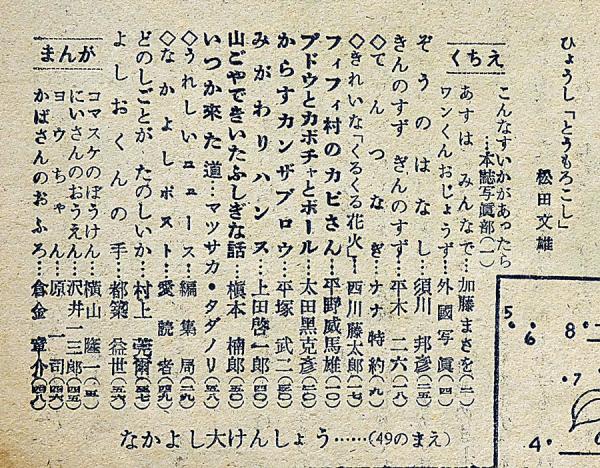 ひょうし「とうもろこし」
松田文雄
くちえ
こんなすいかがあったら
…本誌写眞部(一)
あすは みんなで…加藤まさを(二)
ワンくんおじょうず…外國写眞(四)
ぞうのはなし…須川邦彦(二五)
きんのすず ぎんのすず…平木二六(一八)
◇てんつなぎ…ナナ特約(九)
◇きれいな「くるくる花火」…西川藤太郎(一七)
フィフィ村のカビさん…平野威馬雄(一〇)
ブドウとカボチャとボール…太田黑克彦(二〇)
からすカンザブロウ…平塚武二(三〇)
みがわりハンス…上田啓一郎(四〇)
山ごやできいたふしぎな話…槇本楠郎(五〇)
いつか来た道…マツサカ・タダノリ(五八)
◇うれしいニュース…編集局(二九)
◇なかよしポスト…愛読者(四九)
よしおくんの手…都築益世(五六)
どのしごとが たのしいか…村上莞爾(五七)
まんが
コマスケのぼうけん…横山隆一(五)
にいさんのおうえん…沢井一三郎(四五)
ヨウちゃん…原一司(四六)
かばさんのおふろ…倉金章介(四八)
なかよし大けんしょう……(49のまえ)
5
6
8
7
4